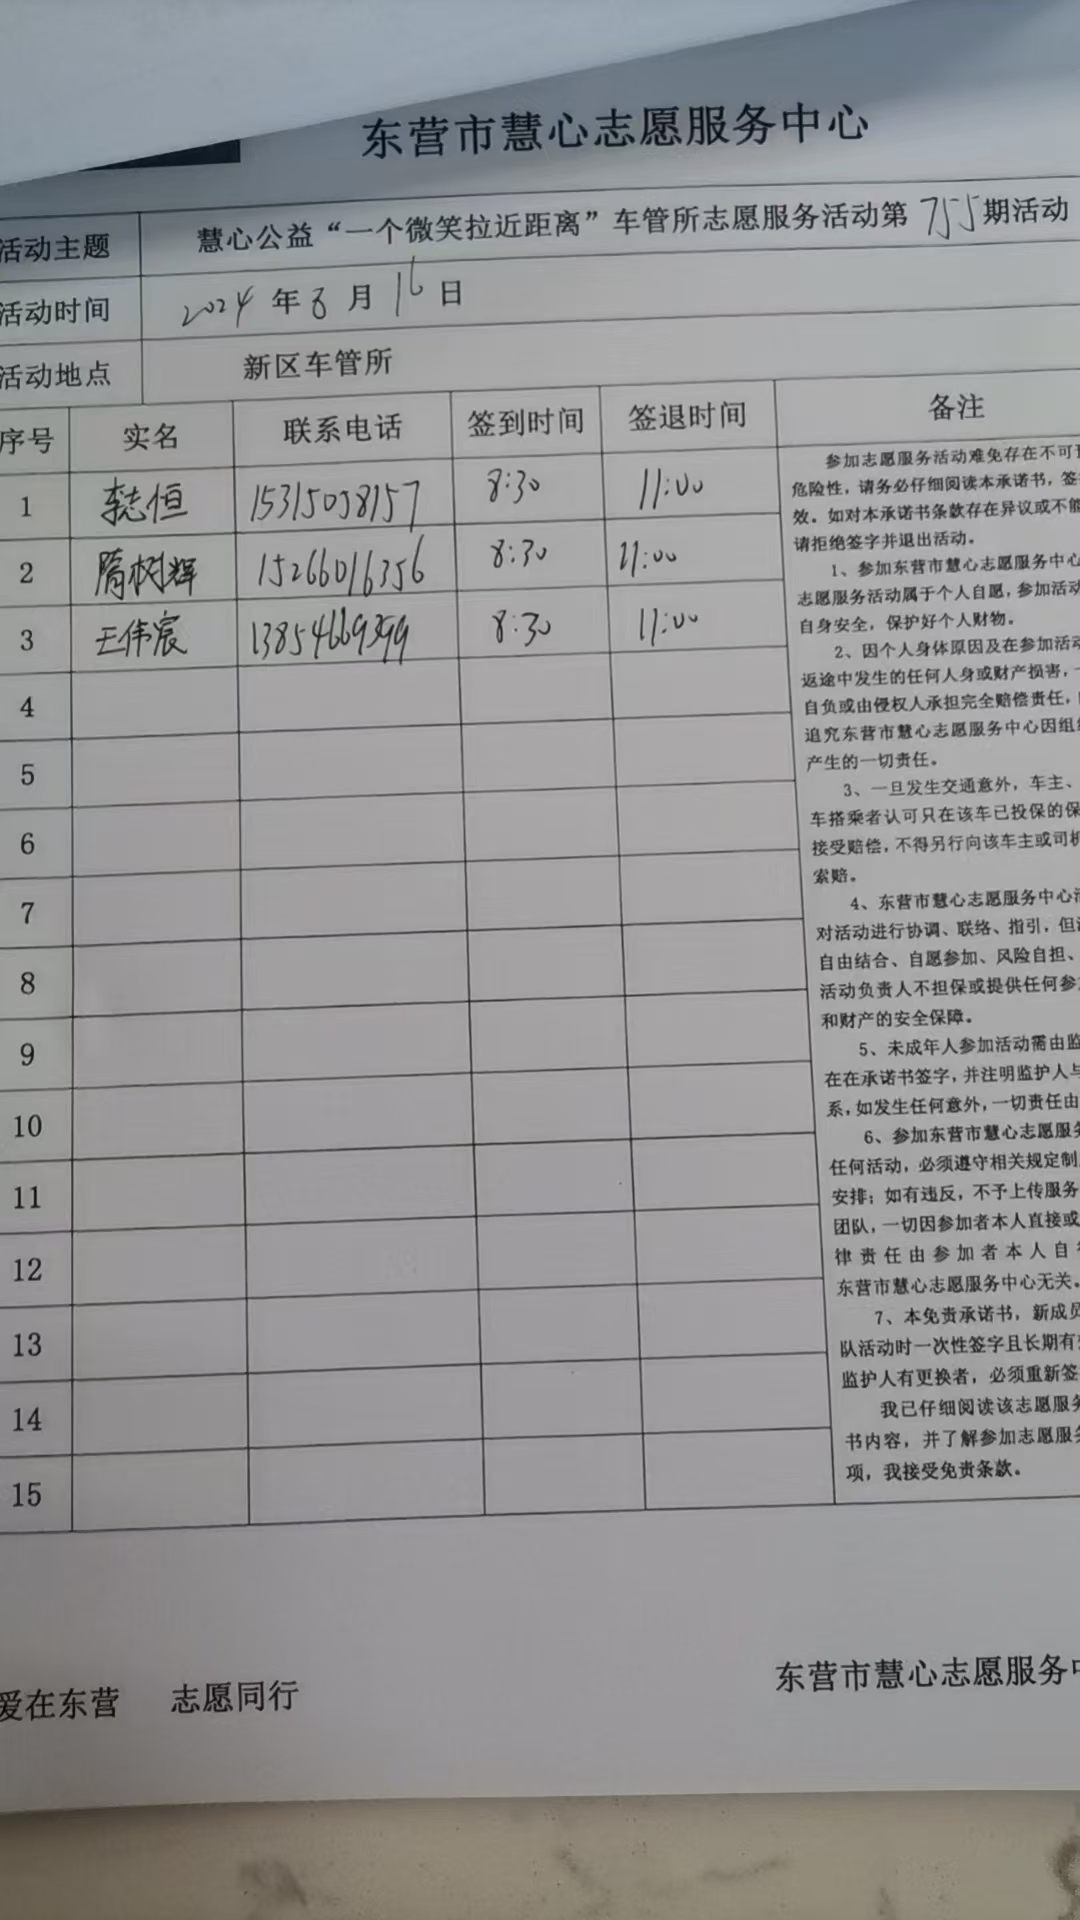 东营市慧心志愿服务中心
活动主题 慧心公益“一个微笑拉近距离”车管所志愿服务活动第755期活动
活动时间 2024年8月16日
活动地点 新区车管所
序号 实名 联系电话 签到时间 签退时间 备注
1 李志恒 15315058157 8:30 11:00
2 隋树辉 15266016356 8:30 11:00
3 王伟宸 13854669399 8:30 11:00
4
5
6
7
8
9
10
11
12
13
14
15
参加志愿服务活动难免存在不可预
危险性，请务必仔细阅读本承诺书，签
效。如对本承诺书条款存在异议或不能
请拒绝签字并退出活动。
1、参加东营市慧心志愿服务中心
志愿服务活动属于个人自愿，参加活动
自身安全，保护好个人财物。
2、因个人身体原因及在参加活动
返途中发生的任何人身或财产损害，
自负或由侵权人承担完全赔偿责任，
追究东营市慧心志愿服务中心因组织
产生的一切责任。
3、一旦发生交通意外，车主、
车搭乘者认可只在该车已投保的保
接受赔偿，不得另行向该车主或司机
索赔。
4、东营市慧心志愿服务中心活
对活动进行协调、联络、指引，但
自由结合、自愿参加、风险自担、
活动负责人不担保或提供任何参
和财产的安全保障。
5、未成年人参加活动需由监
在在承诺书签字，并注明监护人与
系，如发生任何意外，一切责任由
6、参加东营市慧心志愿服务
任何活动，必须遵守相关规定制
安排；如有违反，不予上传服务
团队，一切因参加者本人直接或
律责任由参加者本人自
东营市慧心志愿服务中心无关。
7、本免责承诺书，新成员
队活动时一次性签字且长期有效
监护人有更换者，必须重新签
我已仔细阅读该志愿服务
书内容，并了解参加志愿服务
项，我接受免责条款。
爱在东营 志愿同行
东营市慧心志愿服务中